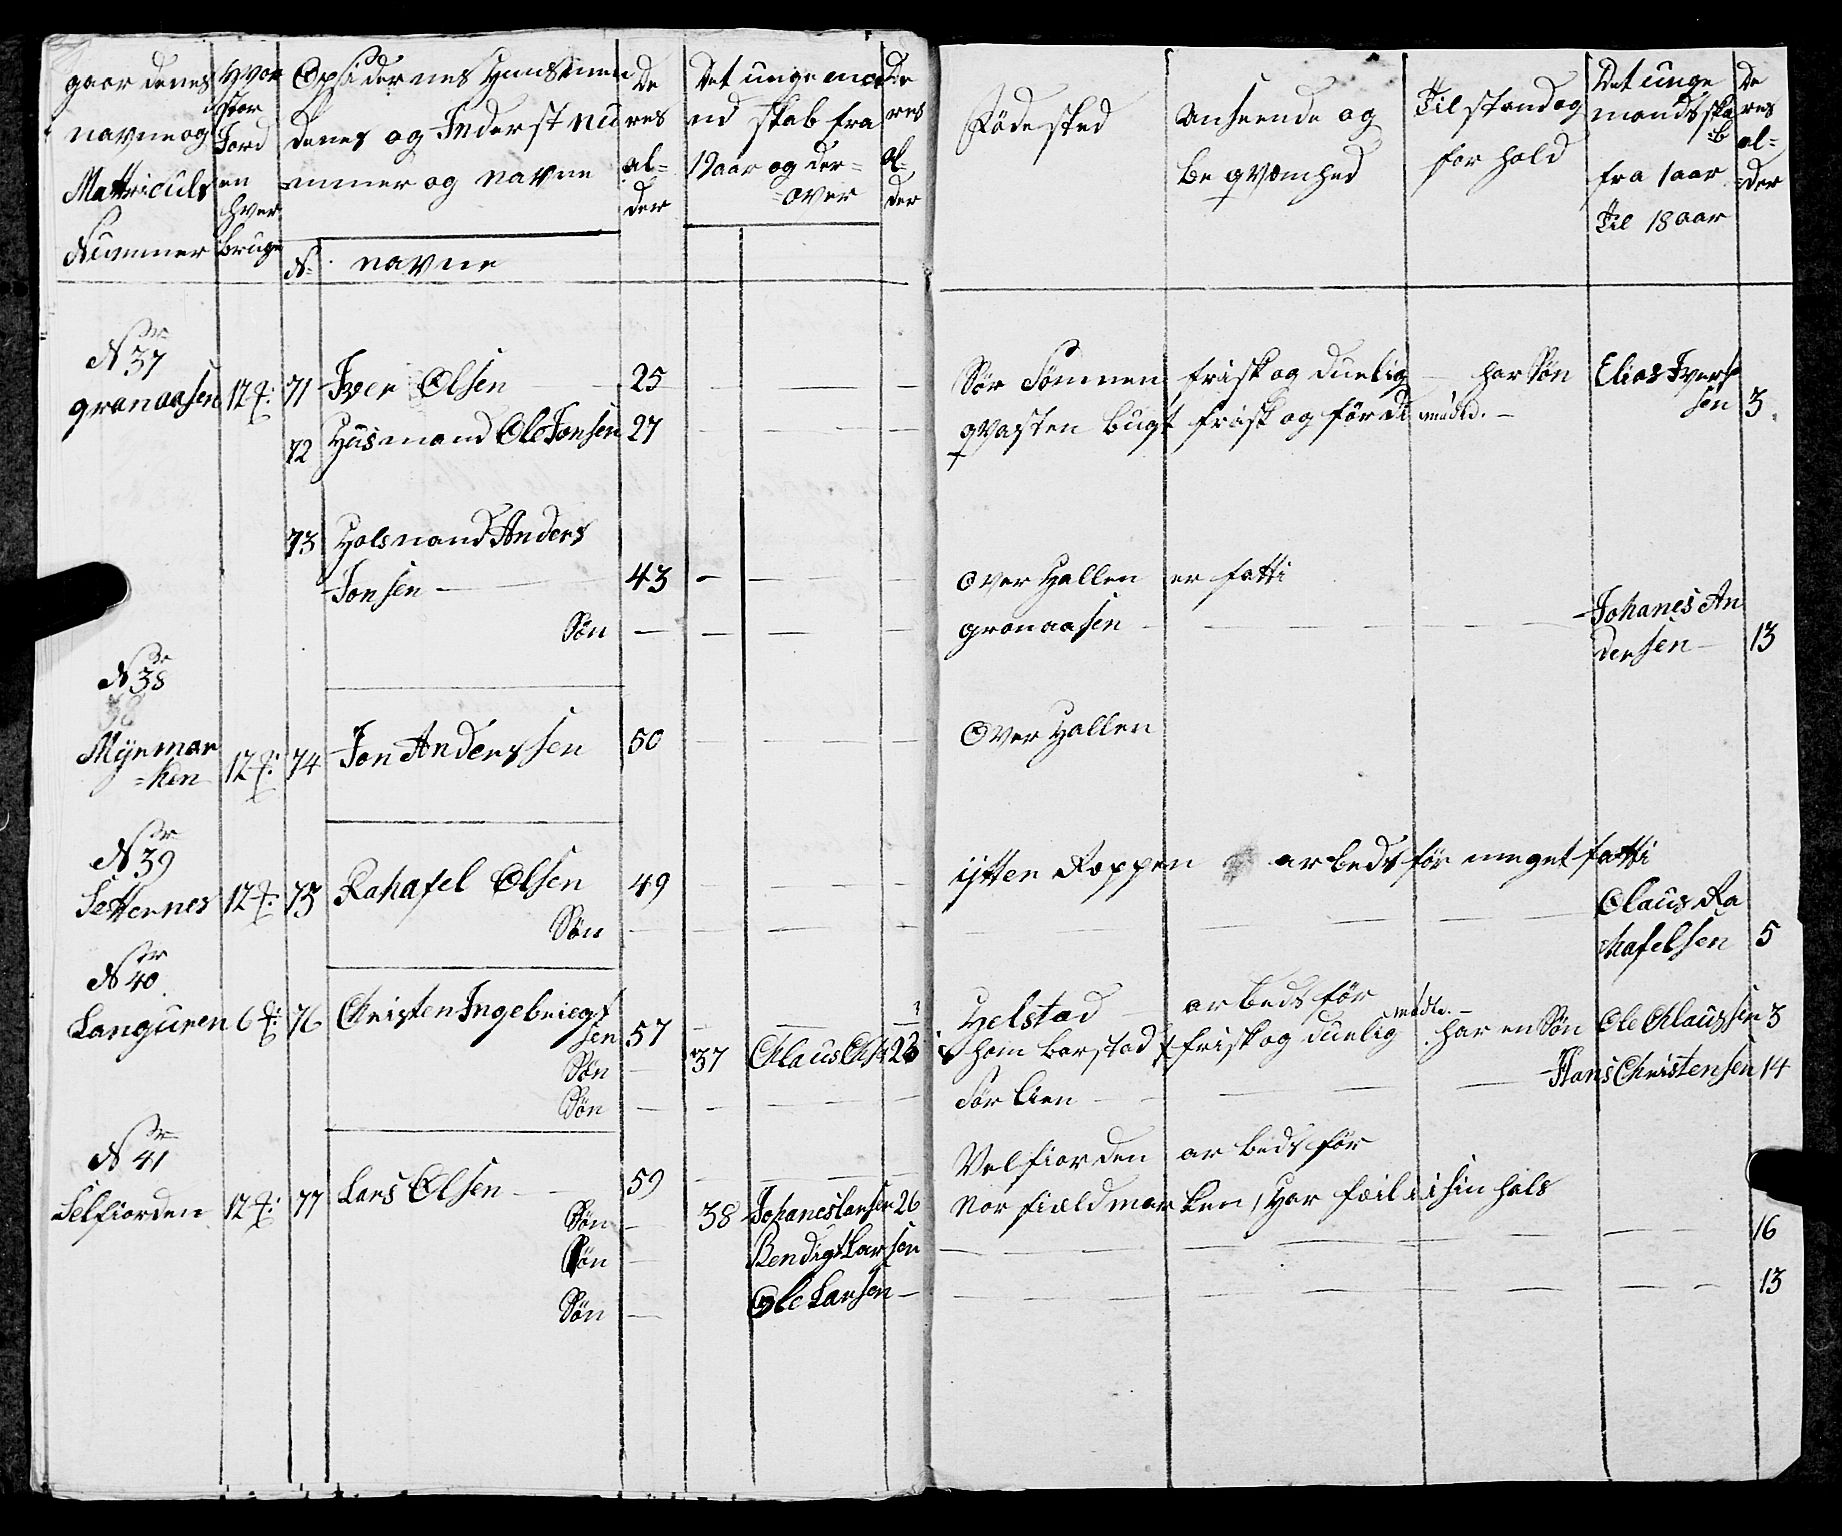 gaardenes
navne og
Mattriculs
Nummer
Hvor
stor
Jord
en
hver
bruge
Opsidernes Huusmen
denes og Inderst nu
mmer og navne
N: navne
De
res
al=
der
Det unge ma
nd skab fra
19 aar og der=
=over
De
res
al=
der
Födested
Anseende og
beqvæmhed
Tilstand og
forhold
Det unge
mandsska
b
fra 1 aar
Til 18 aar
De
res
al=
der
Nr 37
granaasen 12 71 Iver Olsen 25 Sör Sömnen frisk og duelig har Søn Elias Ivers
sen 3
72 Husmand Ole Jonsen 27 qvasten bugt frisk og för di midd.
73 Holsmand Anders
Jonsen 43 Over Hallen er fatti
Søn granaasen Johanes An
dersen 13
Nr 38
Myrmar
=ken 12 74 Jon Anderssen 50 Over Hallen
Nr 39
Setternes 12 75 Rahafel Olsen 49 ytter Roppen arbedsför meget fatti
Søn Claus Ra
hafelsen 5
Nr 40
Languren 6 76 Christen Ingebrigt
sen 57 Helstad arbedsför
Søn 37 Claus Chr 23 hom barstad frisk og duelig midd. har en Søn Ole Claussen 3
Søn Sör lien Hans Christensen 14
Nr 41
Selfiorden 12 77 Lars Olsen 59 Velfiorden arbedsför
Søn 38 Johanes Larsen 26 Nor fieldmarken, Har feil i sin hals
Søn Bendigt Larsen 16
Søn Ole Larsen 13